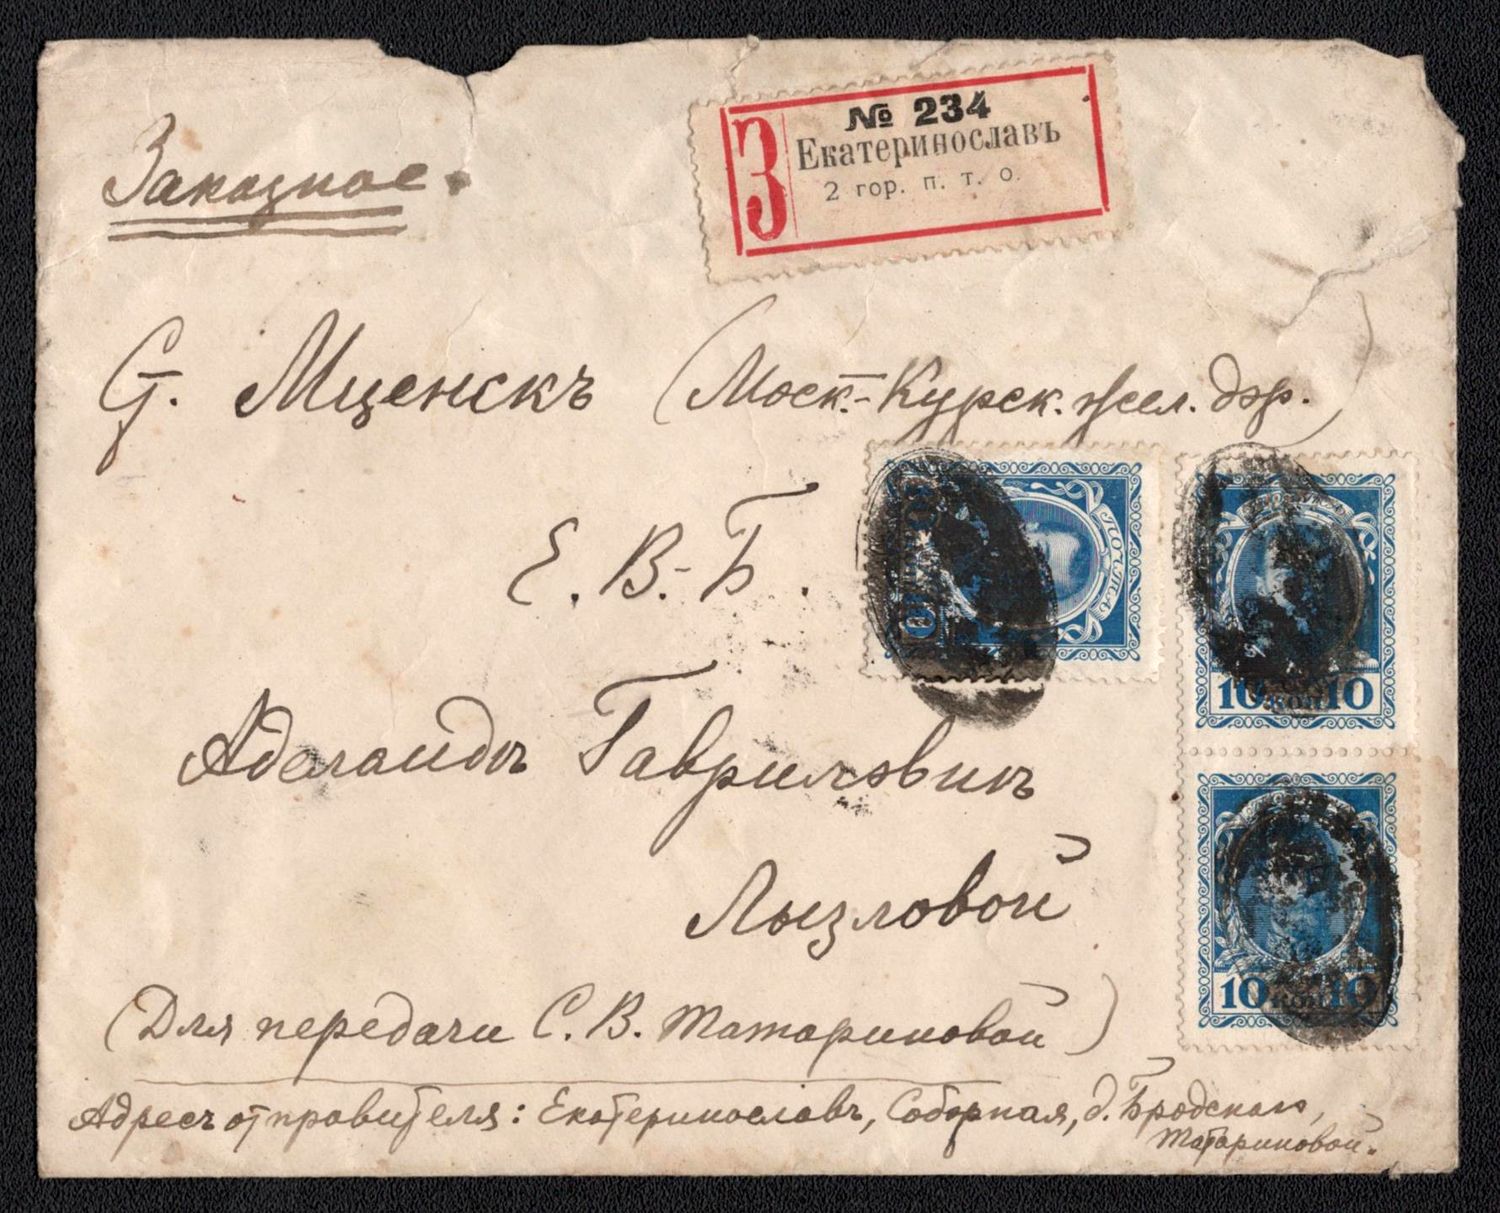 Заказное.
№ 234
З
Екатеринославъ
2 гор. п. т. о.
Ст. Мценскъ (Моск.-Курск. жел. дор.)
Е. В-Б.
Аделаидѣ Гавриловнѣ
Лызловой
(Для передачи С. В. Татариновой)
Адресъ отправителя: Екатеринославъ, Соборная, д. Бродскаго,
Татариновой.
ПОЧТА
10 коп 10
10 коп 10